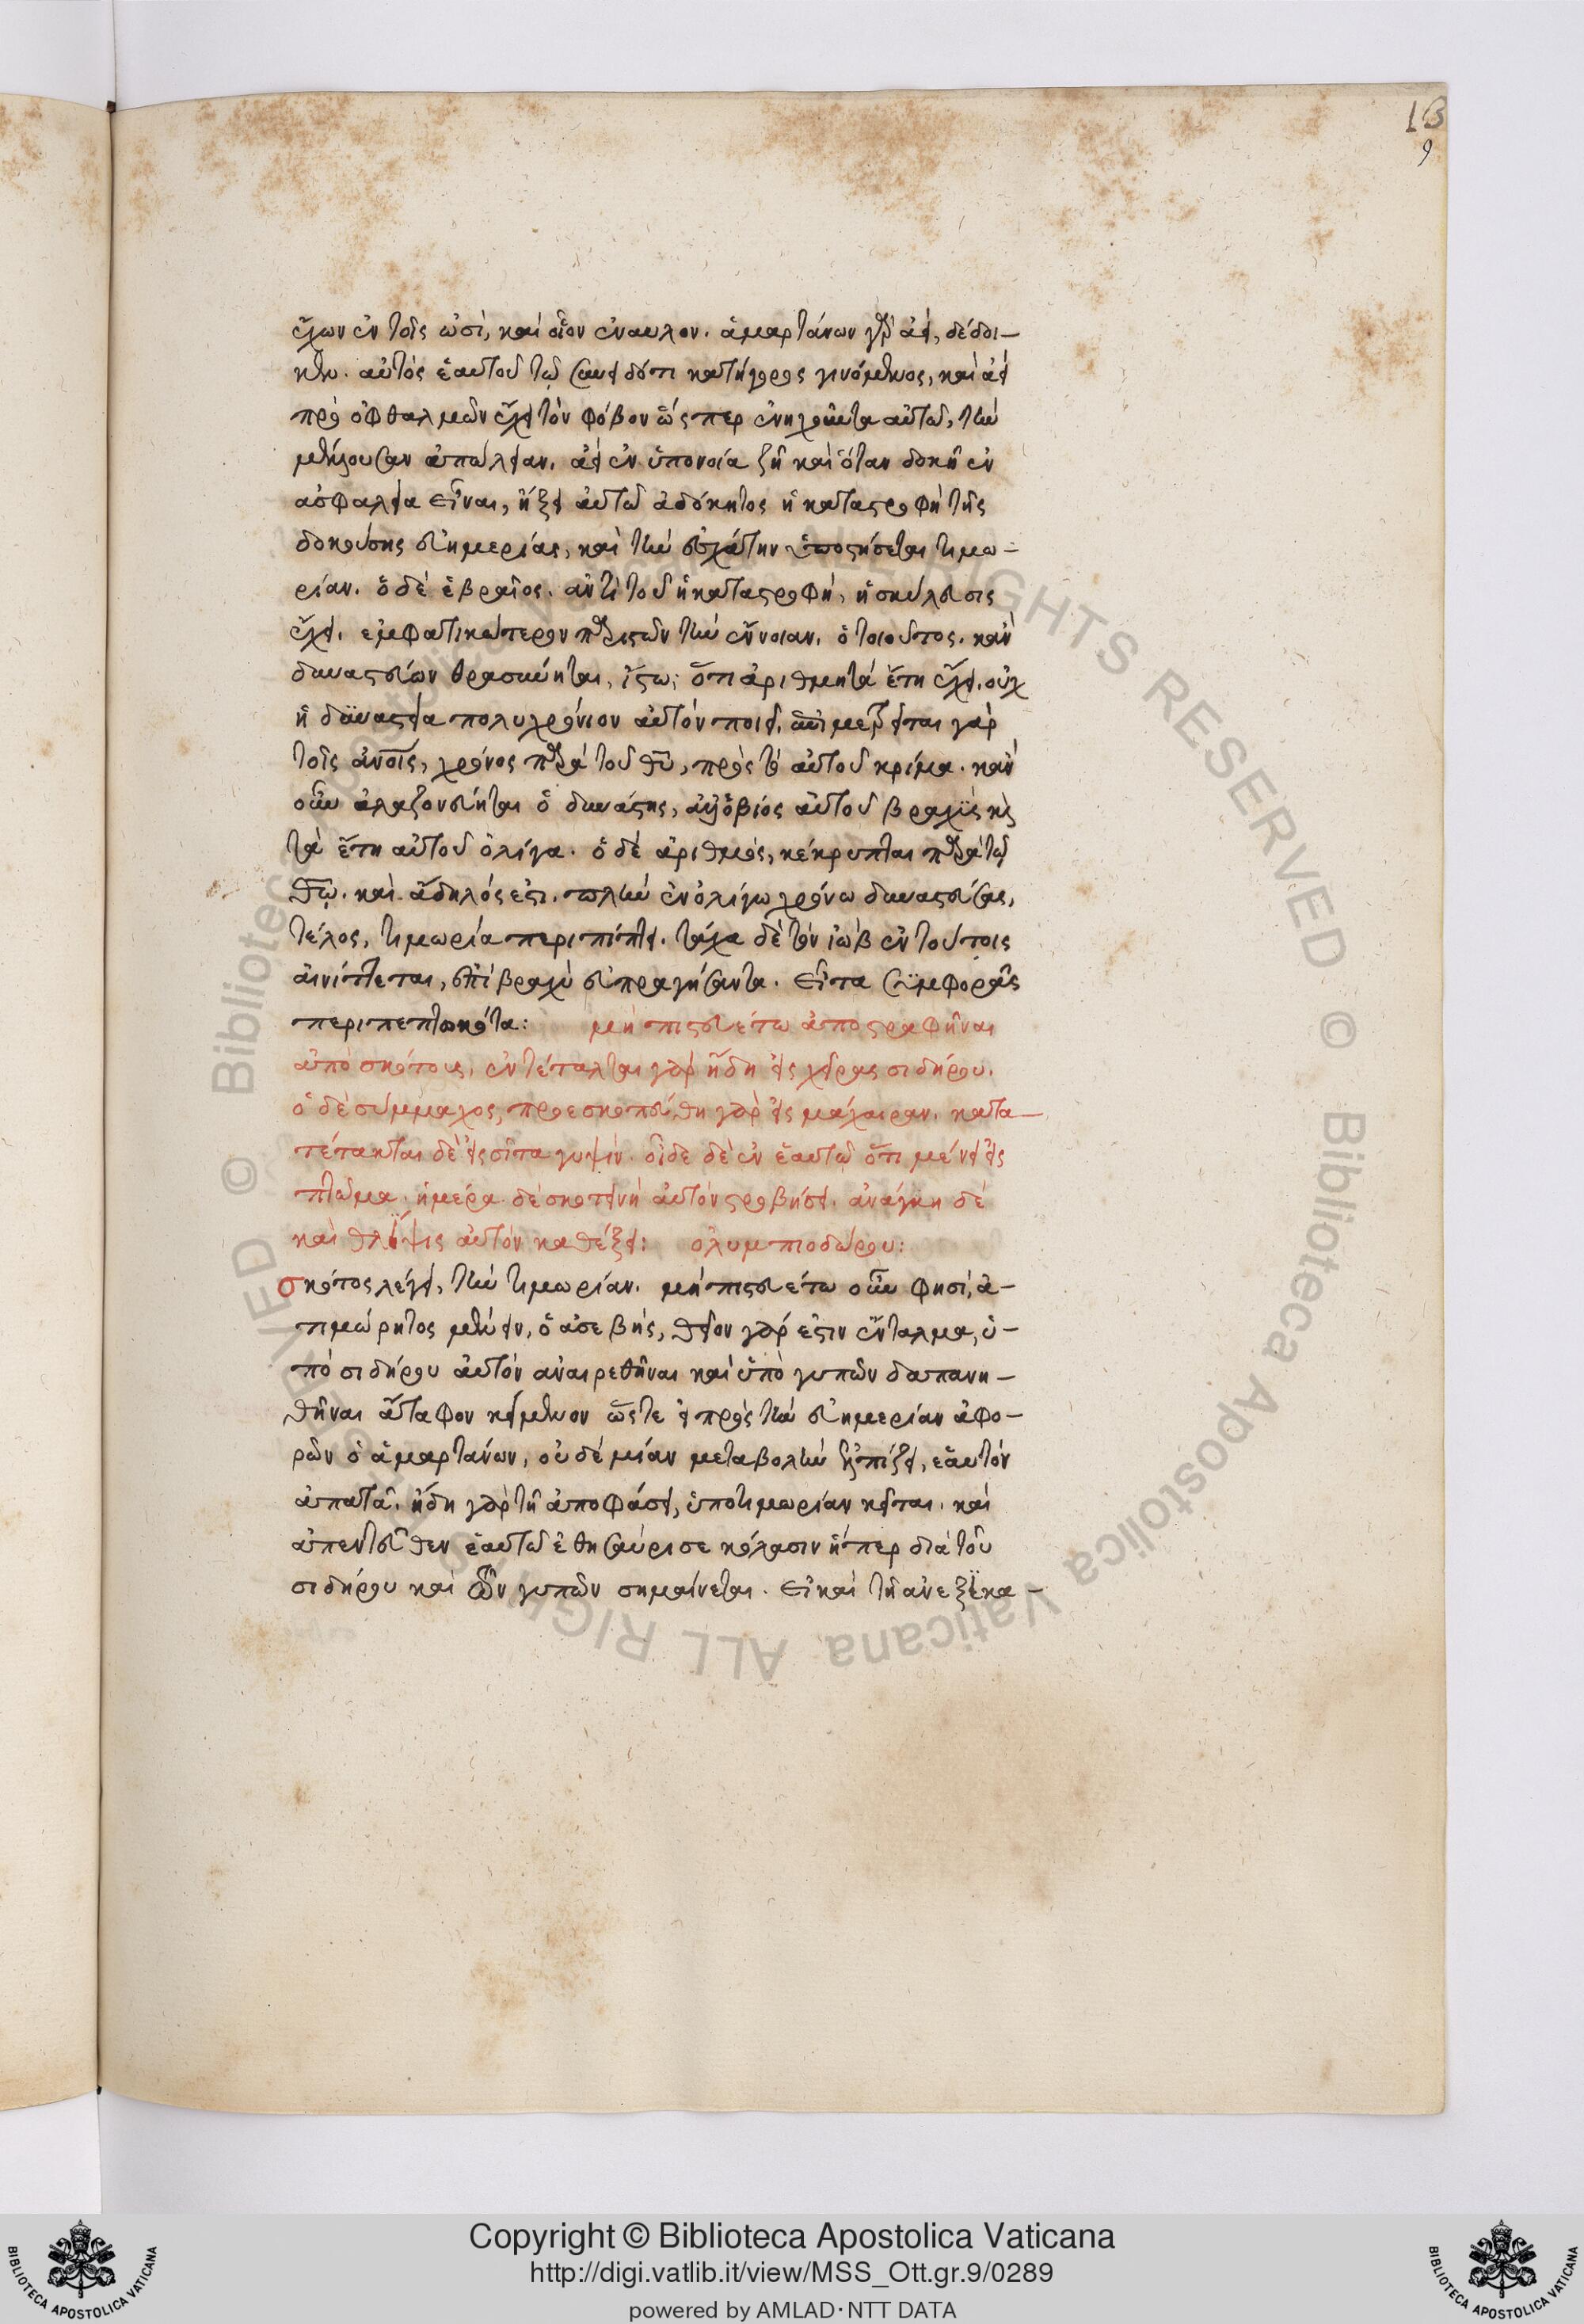 13
9
ἔχων ἐν τοῖς ὠσὶ, καὶ οἷον ἔναυλον. ἁμαρτάνων γὰρ ἀεὶ, δέδοι-
κεν. αὐτὸς ἑαυτοῦ τῷ συνειδότι κατήγορος γινόμενος, καὶ ἀεὶ
πρὸ ὀφθαλμῶν ἔχει τὸν φόβον ὥσπερ ἐνηχοῦντα αὐτῷ, τὴν
μέλλουσαν ἀπώλειαν. ἀεὶ ἐν ὑπονοία ζῆ καὶ ὅταν δοκῆ ἐν
ἀσφαλεία εἶναι, ἥξει αὐτῷ ἀδόκητος ἡ καταστροφὴ τῆς
δοκούσης εὐημερίας, καὶ τὴν ἐσχάτην ὑποστήσεται τιμω-
ρίαν. ὁ δὲ ἑβραῖος. ἀντὶ τοῦ ἡ καταστροφὴ, ἡ σκύλευσις
ἔχει. ἐμφατικώτερον παριστῶν τὴν ἔννοιαν. ὁ τοιοῦτος. κἂν
δυναστεύων θρασύνηται, ἴστω, ὅτι ἀριθμητὰ ἔτη ἔχει. οὐχ
ἡ δυναστεία πολυχρόνιον αὐτὸν ποιεῖ. ἀπομεμέτρηται γὰρ
τοῖς ἀνοις, χρόνος παρὰ τοῦ θυ, πρὸς τὸ αὐτοῦ κρίμα. κἂν
οὖν ἀλαζονεύηται ὁ δυνάστης, ἀλλ' ὁ βίος αὐτοῦ βραχὺς κς
τὰ ἔτη αὐτοῦ ὀλίγα. ὁ δὲ ἀριθμὸς, κέκρυπται παρὰ τῷ
θῷ. καὶ ἄδηλός ἐστι. πλὴν ἐν ὀλίγω χρόνω δυναστεύσας,
τέλος, τιμωρία περιπίπτει. τάχα δὲ τὸν ἰὼβ ἐν τούτοις
αἰνίττεται, ἐπὶ βραχὺ εὐπραγήσαντα. εἶτα συμφοραῖς
περιπεπτωκότα: μὴ πιστευέτω ἀποστραφῆναι
ἀπὸ σκότους, ἐντέταλται γὰρ ἤδη εἰς χεῖρας σιδήρου.
ὁ δὲ σύμμαχος, προεσκοπεύθη γὰρ εἰς μάχαιραν. κατα-
τέτακται δὲ εἰς σῖτα γυψὶν. οἶδε δὲ ἐν ἑαυτῷ ὅτι μένει εἰς
πτῶμα. ἡμέρα δὲ σκοτεινὴ αὐτὸν στροβήσει. ἀνάγκη δὲ
καὶ θλίψις αὐτὸν καθέξει: ὀλυμπιοδώρου:
σκότος λέγει, τὴν τιμωρίαν. μὴ πιστευέτω οὖν φησὶ, ἀ-
τιμώρητος μένειν, ὁ ἀσεβὴς, θεῖον γὰρ ἐστιν ἔνταλμα, ὑ-
πὸ σιδήρου αὐτὸν ἀναιρεθῆναι καὶ ὑπὸ γυπῶν δαπανη-
θῆναι ἄταφον κείμενον ὥστε εἰ πρὸς τὴν εὐημερίαν ἀφο-
ρῶν ὁ ἁμαρτάνων, οὐδὲ μίαν μεταβολὴν ἐλπίζει, ἑαυτὸν
ἀπατᾶ. ἤδη γὰρ τῆ ἀποφάσει, ὑπὸ τιμωρίαν κεῖται. καὶ
ἀπεντεῦθεν ἑαυτῷ ἐθησαύρισε κόλασιν ἥπερ διὰ τοῦ
σιδήρου καὶ τῶν γυπῶν σημαίνεται. εἰ καὶ τῆ ἀνεξικα-
Copyright © Biblioteca Apostolica Vaticana
http://digi.vatlib.it/view/MSS_Ott.gr.9/0289
powered by AMLAD·NTT DATA
BIBLIOTECA APOSTOLICA VATICANA
BIBLIOTECA APOSTOLICA VATICANA
© Biblioteca Apostolica Vaticana ALL RIGHTS RESERVED